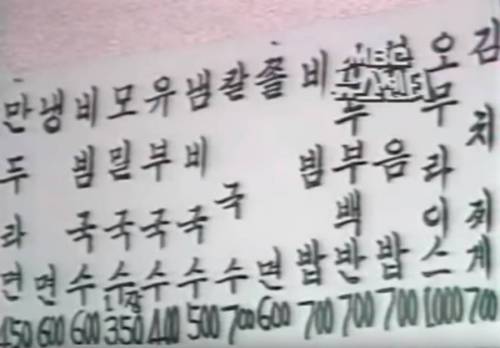 김치찌계 700
오무라이스 1000
음밥 700
두부백반 700
비빔밥 700
쫄면 600
칼국수 700
냄비국수 500
유부국수 400
모밀국수 1장 350
비빔국수 600
냉면 600
만두라면 450